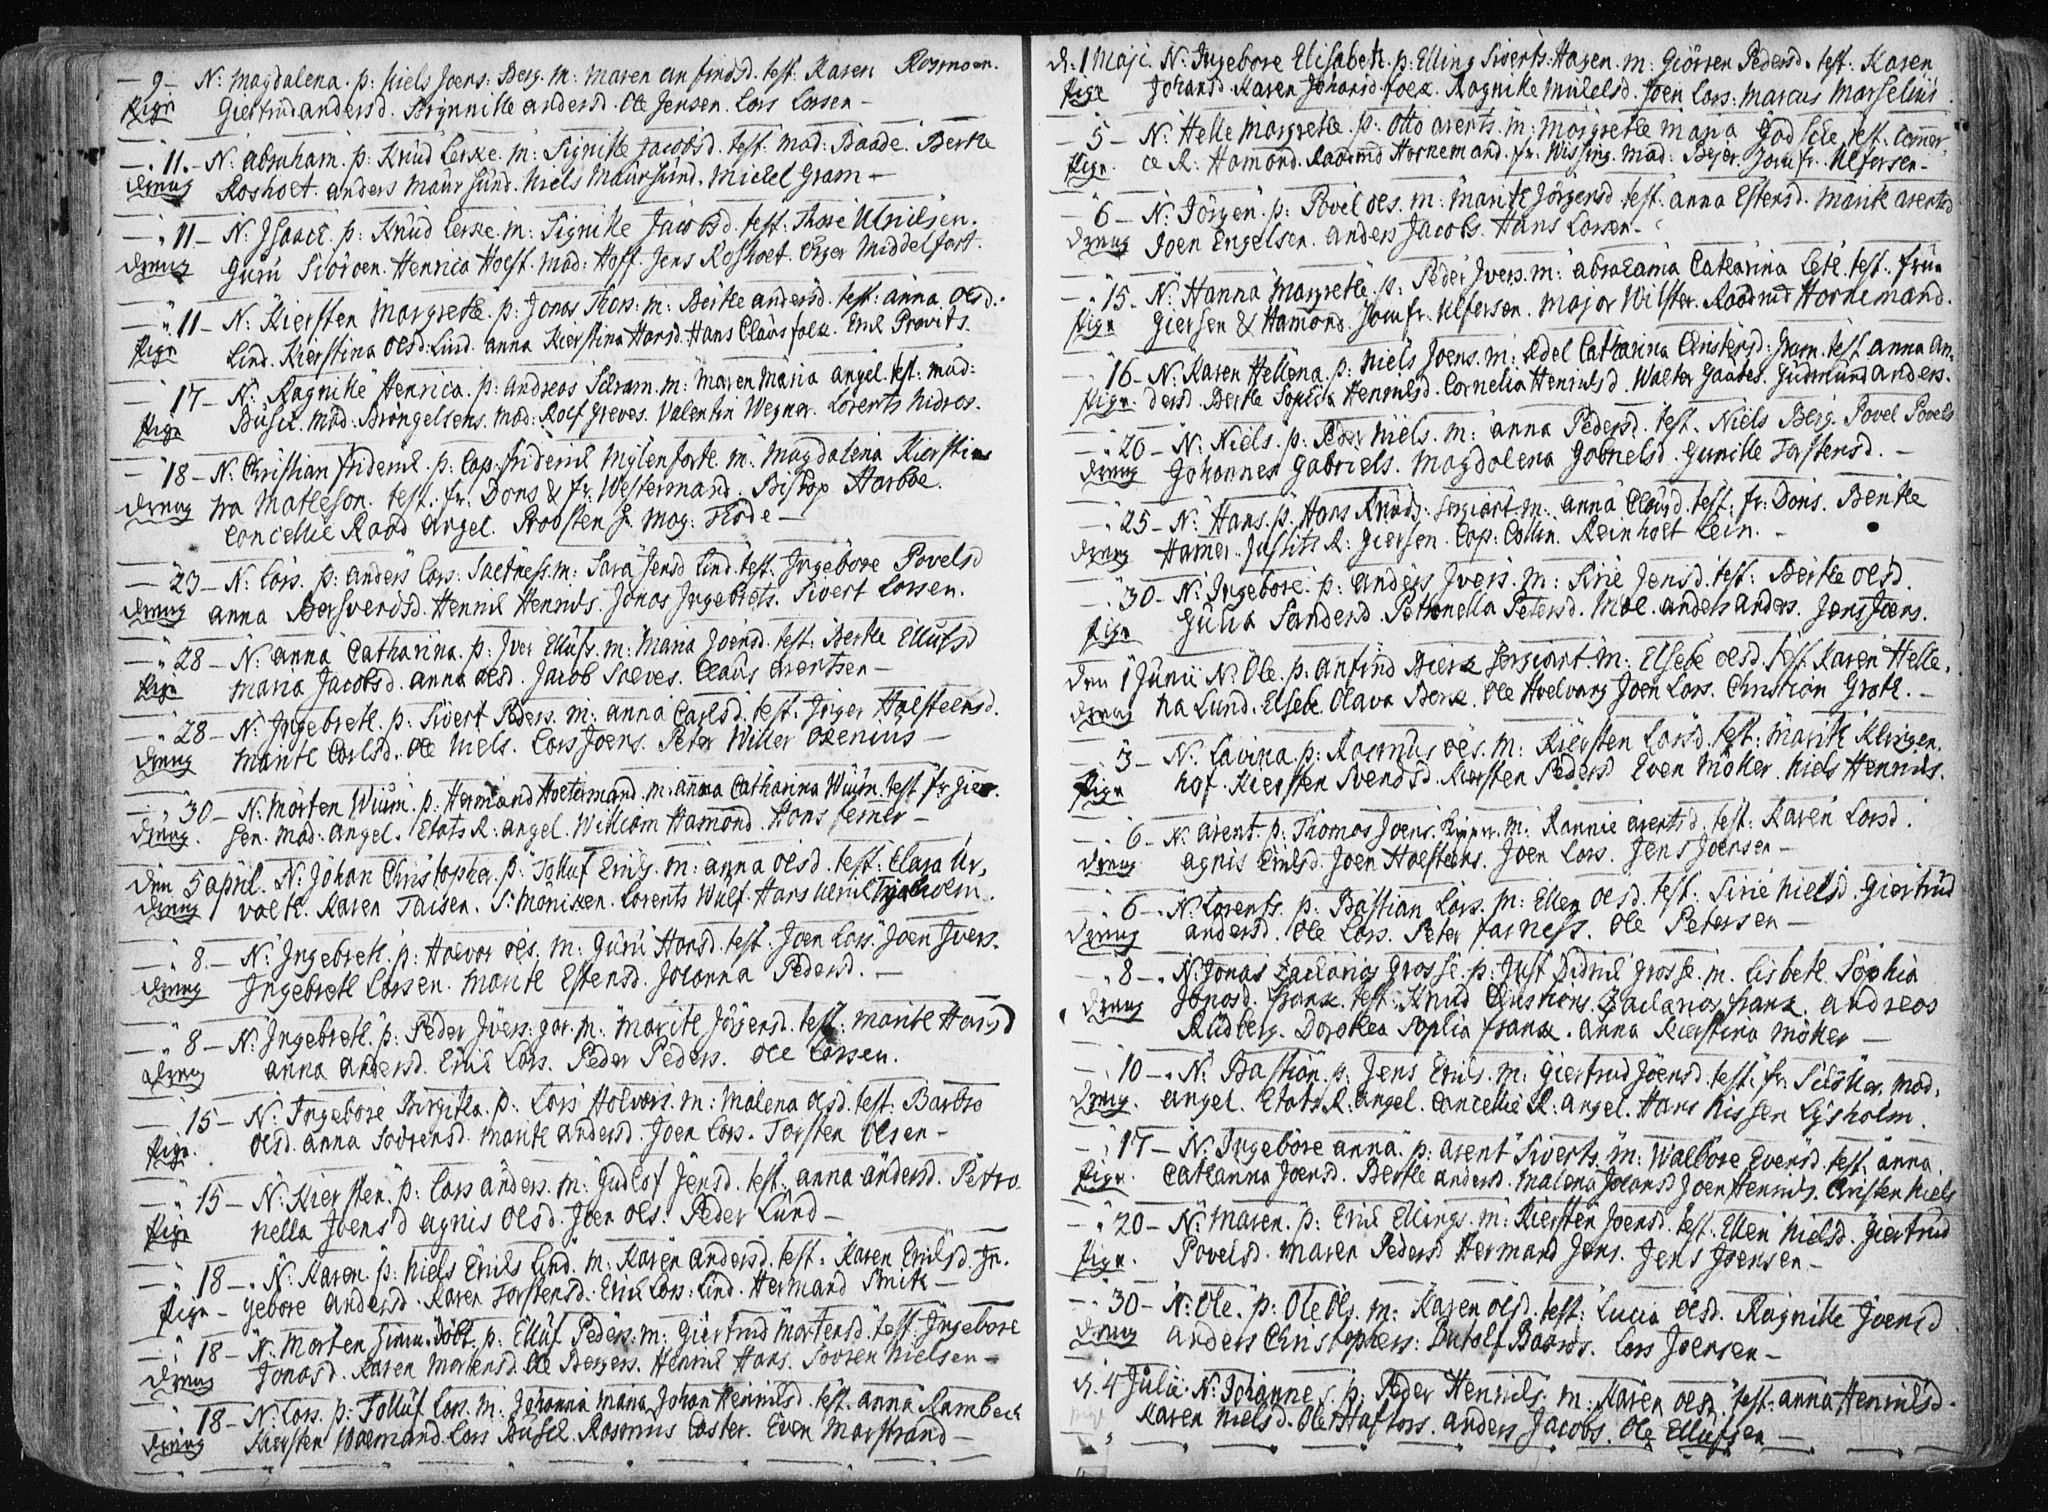 — 9 – N: Magdalena. p: Niels Joens: Berg. m: Maren anfinsd. test: Karen Rosmoen.
Pige Giertrud andersd. Brynnille andersd. Ole Jensen. Lors Lorsen –
— 11 – N: abraham. p: Knud Lerke. m: Signille Jacobsd. test: mad: Baade. Berte
dreng Rosholt. anders Maursund. Niels Maursund. Michel Gram –
— 11 – N: Isaach. p: Knud Lerke. m: Signille Jacobsd. test:
dreng Guru Henrica Holst. Mad: Hoff. Jens Rosholt. Middelfort.
— 11 – N: Kiersten Margrethe. p: Jonas Thors: m: Berthe andersd. test: anna olsd.
Pige Lind. Kierstina olsd: Lind. anna Kierstina Hansd. Hans Clausfalck. Erik Provits.
— 17 – N: Ragnille Henrica. p: andreas Schram. m: Maren Maria angel. test: mad:
Pige Busch. Mad: Brongelsens. Mad: Rolf Greves. Valentin Wegner. Lorents Nidros.
— 18 – N: Christian friderik. p: Cap: friderik Mylenforth. m: Magdalena Kierstina
dreng Matheson. test: fr: Dons & fr: Westermand. Biskop Harboe.
Concellie Raad angel. Proosten Hr Mag: Thode –
— 23 – N: Lors. p: anders Lors: Saltness. m: Sara Jensd Lind. test: Ingebore Povelsd
dreng anna Bersvendsd. Henrik Henriks. Jonas Ingebrets. Sivert Lorsen.
— 28 – N: anna Catharina. p: Iver Ellufs. m: Maria Joensd. test: Berthe Ellufsd
Pige Maria Jacobsd. anna olsd. Jacob Claus arentsen –
— 28 – N: Ingebreth. p: Sivert Peders. m: anna Carlsd. test: Inger Holsteensd.
dreng Marith Carlsd. Ole Niels. Lors Joens. Peter Willer Oxenius –
— 30 – N: Morten Wium. p: Hermand Holtermand. m: anna Catharina Wium. test fr: Gier-
dreng. sen. mad: angel. Etats R: angel. William Hamond. Hans ferner –
den 5 april. N: Johan Christopher. p: Tolluf Eriks. m: anna olsd. test: Clara Ur-
dreng voldt. Karen Taisen. Lorents Wulf. Hans Ulrik
— 8 – N: Ingebreth. p: Halvor ols. m: Guru Hansd. test: Joen Lors. Joen Ivers.
dreng Ingebreth Lorsen. Marith Estensd. Johanna Pedersd. –
— 8 – N: Ingebreth. p: Peder Ivers: m: Marith Jörgensd. test: Marith Hansd
dreng anna andersd. Erik Lors. Peder Peders. Ole Lorsen.
— 15 – N: Ingebore Birgitha. p: Lors Holvors. m: Malena olsd. test: Barbro
Pige. olsd. anna Sörrensd. Marith andersd. Joen Lors. Torsten Olsen –
— 15 – N: Kiersten. p: Lors anders. m: Gudlof Jensd. test: anna andersd. Petro-
Pige nella Joensd agnis olsd. Joen ols: Peder Lund –
— 18 – N: Karen. p: Niels Eriks Lind. m: Karen andersd. test: Karen Eriksd. In-
Pige – gebore andersd. Karen Torstensd. Erik Lors: Lind. Hermand Smith –
— 18 – N: Morten hiem: döbt. p: Elluf Peders. m: Giertrud Mortensd. test: Ingebore
dreng Jonasd. Karen Mortensd. Ole Bergers. Henrik Hans. Sörren Nielsen –
— 18 – N: Lors. p: Tolluf Lors. m: Johanna Maria Johan Henriksd. test. anna Rambech
dreng Kiersten Wolemand. Lors Busch. Rasmus Caster. Even Marstrand –
d: 1 Maji. N: Ingebore Elisabeth. p: Elling Siverts: Hagen. m: Giörren Pedersd. test: Karen
Pige Johansd. Karen Johansd. folck. Ragnille Mikelsd. Joen Lors: Marcus Marselius.
— 5 – N: Helle Margrethe. p: Otto arents. m: Margrethe Maria Godsche test. Commer-
Pige. ce R: Hamond. Raadmd Hornemand. fr: Wissing. Mad: Beyer. Jomfr: Ulfersen –
— 6 – N: Jörgen. p: Povel ols. m: Marith Jörgensd. test: anna Estensd. Marith arentsd
dreng Joen Engelsen. anders Jacobs. Hans Lorsen –
— 15 – N: Hanna Margrethe. p: Peder Ivers. m: abrahama Catharina Leth. test: frue
Pige Giersen & Hamond. Jomfr: Ulfersen. Major Wilster. Raadmd Hornemand.
— 16 – N: Karen Hellena. p: Niels Joens. m: Adel Catharina Christensd: Gram. test anna an-
Pige. dersd. Berthe Sophia Henriksd. Cornelia Henriksd. Wolter Gaabes. Gudmund anders.
— 20 – N: Niels. p: Peder Niels. m: anna Pedersd. test. Niels Berg. Povel Povels
dreng Johannes Gabriels. Magdalena Gabrielsd. Gunille Torstensd. –
— 25 – N: Hans. p: Hans Knuds: sergiant. m: anna Clausd. test: fr: Dons. Benthe
dreng Hamer. Justits R: Giersen. Cap: Collin. Reinholt Lein. –
— 30 – N: Ingebore. p: anders Ivers. m: Sirie Jensd. test: Berthe olsd.
Pige Gulia Sandersd. Petronella Petersd. Moe. anders anders. Jens Joens.
den 1 Junii N: Ole. p: anfind Bierck sergiant. m: Elsebe olsd. test. Karen Helle-
dreng na Lund. Elsebe Olava Berck. Ole Hvelvang Joen Lors. Christian Groth. –
— 3 – N: Lavina. p: Rasmus ols. m: Kiersten Lorsd. test: Marith Klingen-
Pige hof. Kiersten Svendsd. Kiersten Pedersd Even Möller. Niels Henriks.
— 6 – N: arent. p: Thomas Joens: m: Rannie arentsd. test: Karen Lorsd.
dreng agnis Eriksd. Joen Holsteens. Joen Lors. Jens Joensen –
— 6 – N: Lorents. p: Bastian Lors. m: Ellen olsd. test: Sirie Nielsd. Giertrud
dreng andersd. Ole Lors. Peter farness. Ole Petersen –
— 8 – N: Jonas Zacharias Grosse. p: Just Didrik Grosse. m. Lisbeth Sophia
dreng Jonasd. franck. test: Knud Christians. Zacharias franck. andreas
Rudberg. Dorothea Sophia franck. anna Kierstina Möller –
— 10 – N: Bastian. p: Jens Eriks. m: Giertrud Joensd. test: fr: mad.
dreng. angel. Etats R: angel. Concellie R: angel. Hans Nissen Lysholm.
— 17 – N: Ingebore anna. p: arent Siverts. m: Walbore Evensd. test: anna
Pige. Catharina Joensd. Berthe andersd. Malena Johansd Joen Henriks. Christen Niels
— 20 – N: Maren. p: Erik Ellings. m: Kiersten Joensd. test. Ellen Nielsd. Giertrud
Pige. Povelsd. Maren Pedersd Hermand Jens. Jens Joensen –
— 30 – N: Ole. p: Ole Ols. m: Karen olsd. test: Lucia olsd. Ragnille Joensd
dreng anders Christophers: Botolf Baards. Lors Joensen –
d. 4 Julii. N: Johannes. p: Peder Henriks. m: Karen olsd. test: anna Henriksd.
Karen Nielsd. Ole Haftors. anders Jacobs. Ole Ellufsen –